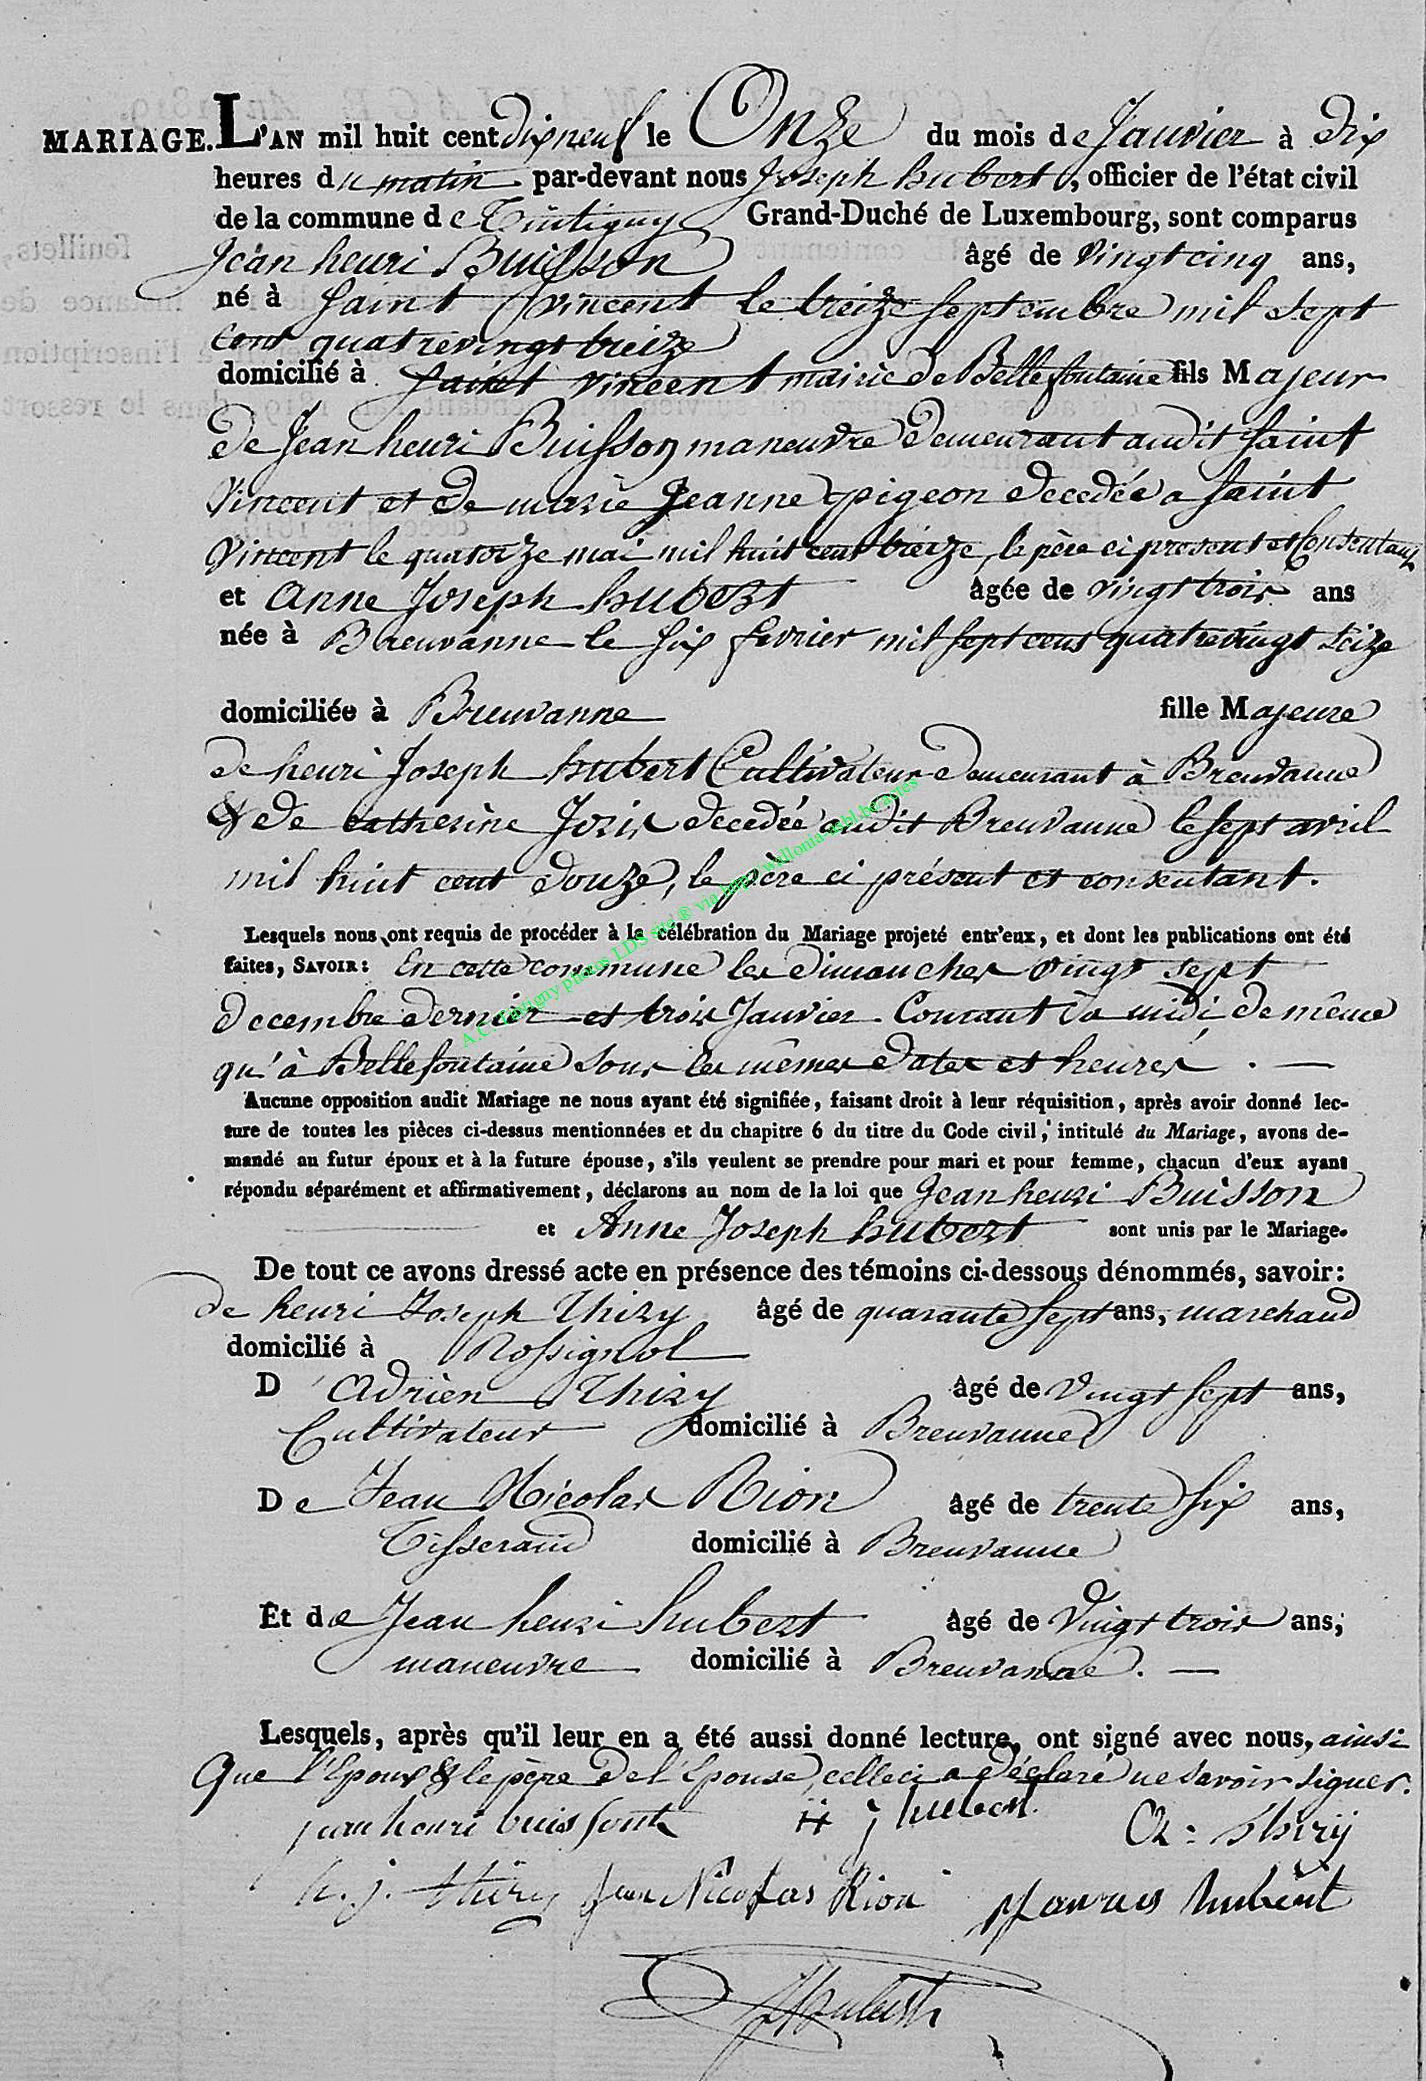 MARIAGE. L'AN mil huit cent dix neuf le Onze du mois de Janvier à dix
heures du matin par-devant nous Joseph hubert, officier de l'état civil
de la commune de Tintigny Grand-Duché de Luxembourg, sont comparus
Jean henri Buisson âgé de vingt cinq ans,
né à Saint Vincent le treize septembre mil sept
cent quatrevingt treize
domicilié à Saint Vincent mairie de Bellefontaine fils Majeur
de Jean henri Buisson maneuvre demeurant audit Saint
Vincent et de marie Jeanne pigeon decedée a Saint
Vincent le quatorze mai mil huit cent treize, le père ci present et Consentant
et Anne Joseph hubert âgée de vingt trois ans
née à Breuvanne le six fevrier mil sept cent quatrevingt seize
domiciliée à Breuvanne fille Majeure
de henri Joseph hubert Cultivateur demeurant à Breuvanne
& de catherine Joris decedée audit Breuvanne le sept avril
mil huit cent douze, le père ci présent et consentant.
Lesquels nous ont requis de procéder à la célébration du Mariage projeté entr'eux, et dont les publications ont été
faites, SAVOIR: En cette commune les dimanches vingt sept
decembre dernier et trois Janvier Courant à midi de même
qu'à Bellefontaine sous les mêmes dates et heures. —
A.C. Tintigny photos LDS site ® via http://wallonia-asbl.be/actes
Aucune opposition audit Mariage ne nous ayant été signifiée, faisant droit à leur réquisition, après avoir donné lec-
ture de toutes les pièces ci-dessus mentionnées et du chapitre 6 du titre du Code civil, intitulé du Mariage, avons de-
mandé au futur époux et à la future épouse, s'ils veulent se prendre pour mari et pour femme, chacun d'eux ayant
répondu séparément et affirmativement, déclarons au nom de la loi que Jean henri Buisson
et Anne Joseph hubert sont unis par le Mariage.
De tout ce avons dressé acte en présence des témoins ci-dessous dénommés, savoir:
de henri Joseph Thiry âgé de quarante sept ans, marchand
domicilié à Rossignol
D'Adrien Thiry âgé de vingt sept ans,
Cultivateur domicilié à Breuvanne
De Jean Nicolas Rion âgé de trente six ans,
Tisserand domicilié à Breuvanne
Et de Jean henri hubert âgé de Vingt trois ans;
maneuvre domicilié à Breuvanne. —
Lesquels, après qu'il leur en a été aussi donné lecture, ont signé avec nous, ainsi
Que l'Epoux & le père de l'Epouse, celle ci a déclaré ne savoir signer.
jean henri buissont H j hubert. A: thiry
h. j. thiry Jean Nicolas Rion hubert
JHubert